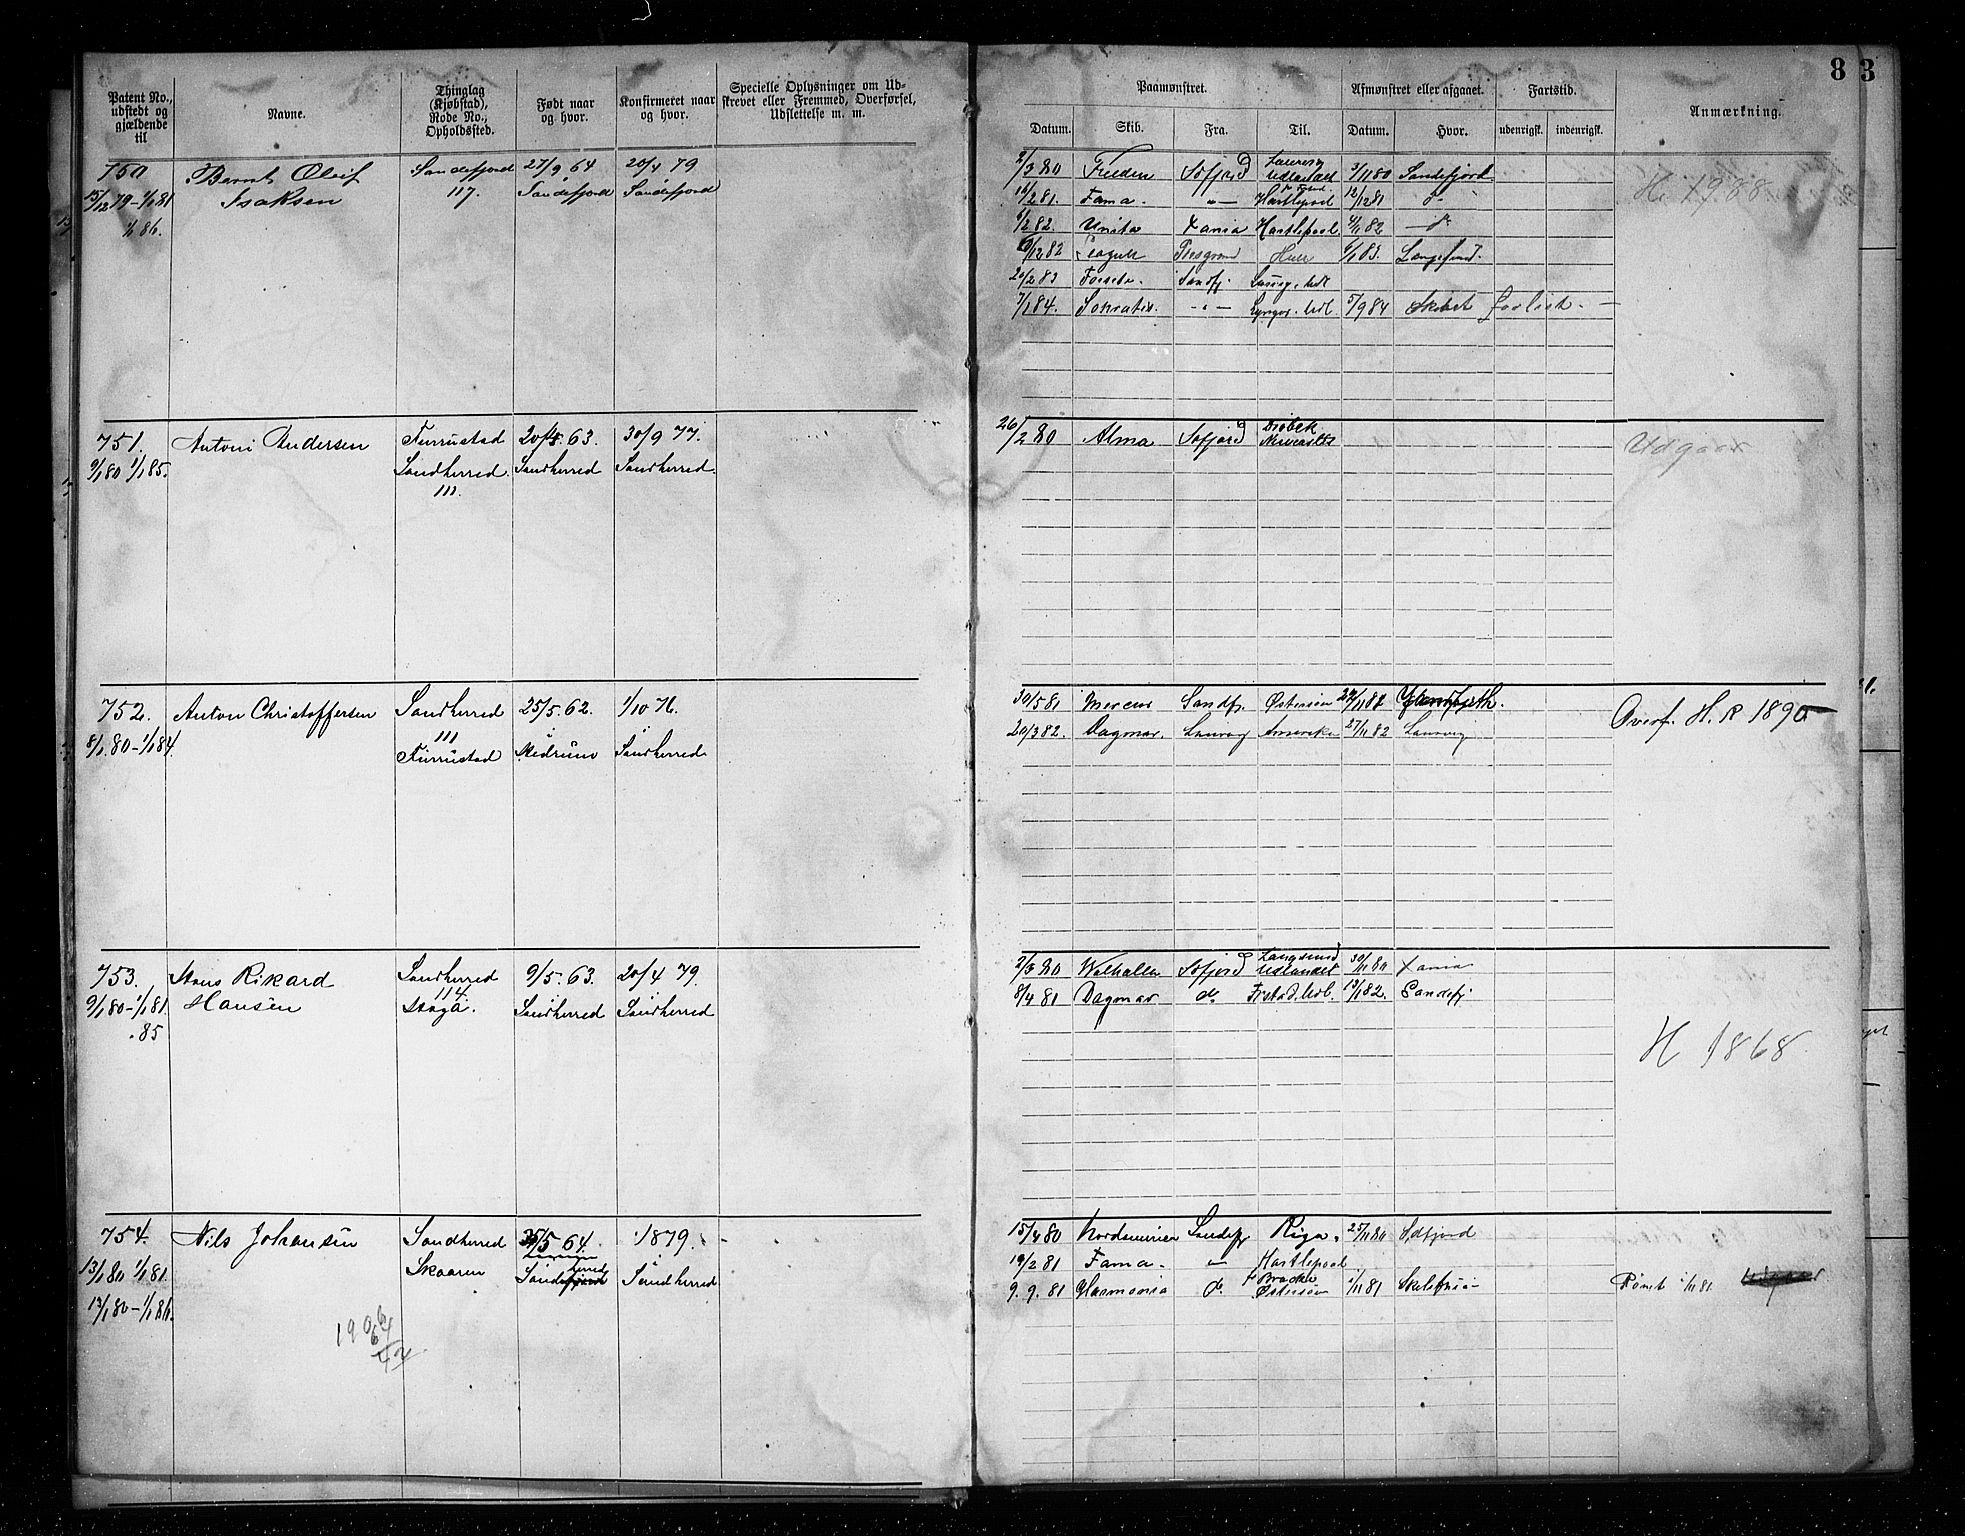 83
Patent No., udstedt og gjældende til
Navne.
Thinglag (Kjøbstad), Rode No., Opholdssted.
Født naar og hvor.
Konfirmeret naar og hvor.
Specielle Oplysninger om Udskrevet eller Fremmed, Overførsel, Udslettelse m. m.
Paamønstret.
Afmønstret eller afgaaet.
Fartstid.
Anmærkning.
Datum. Skib. Fra. Til. Datum. Hvor. udenrigsk. indenrigsk.
750 Bernt Oluf Sandefjord 27/9 64 20/4 79
15/12 79-1/1 81 Isaksen 117. Sandefjord Sandefjord
1/1 86.
2/3 80 Sofjord Udlandet 3/11 80 Sandefjord
2 81. Fama. " Hartlepool 12/12 81 do
H. 1988
/2 82. Unita Xania Hartlepool 82 do
/12 82 Hull 6/1 83.
20/2 83 Sandfj.
7/1 84. Sokrates. " 5/9 84 Skibet forlist.
751. Antoni Andersen Furrustad 20/5 63. 30/9 77.
9/1 80 1/1 85. Sandherred. Sandherred Sandherred.
111.
26/2 80 Alma Sofjord Drøbak
Udgaar
752. Anton Christoffersen Sandherred 25/5. 62. 1/10 76.
8/1 80-1/1 84. 111 Medrum Sandherred
Furrustad
30/5 81 Mercur Sandfj. Østersøen
20/3 82. Dagmar. Laurvig Amerika 27/11 82 Laurvig
Overf. H. R 1890
753. Hans Rikard Sandherred 9/5. 63. 20/4 79.
9/1 80-1/1 81 Hansen 114 Sandherred Sandherred
.85
2/3 80 Walhalla Sofjord Langesund Udlandet 30/11 80 Xania
8/4 81 Dagmar do Frstad. Udl. 13/1 82. Sandefj
H 1868
754. Nils Johansen Sandherred 5 64. 1879.
13/1 80 1/1 81. Skaaren Sandherred Sandherred
13/1 80-1/1 86.
15/4 80 Sandefj Riga. 25/11 80 Sofjord
19/2 81 Fama. " Hartlepool.
9. 9. 81 Harmonia do Østersøen 1/11 81
Rømt 1/11 81